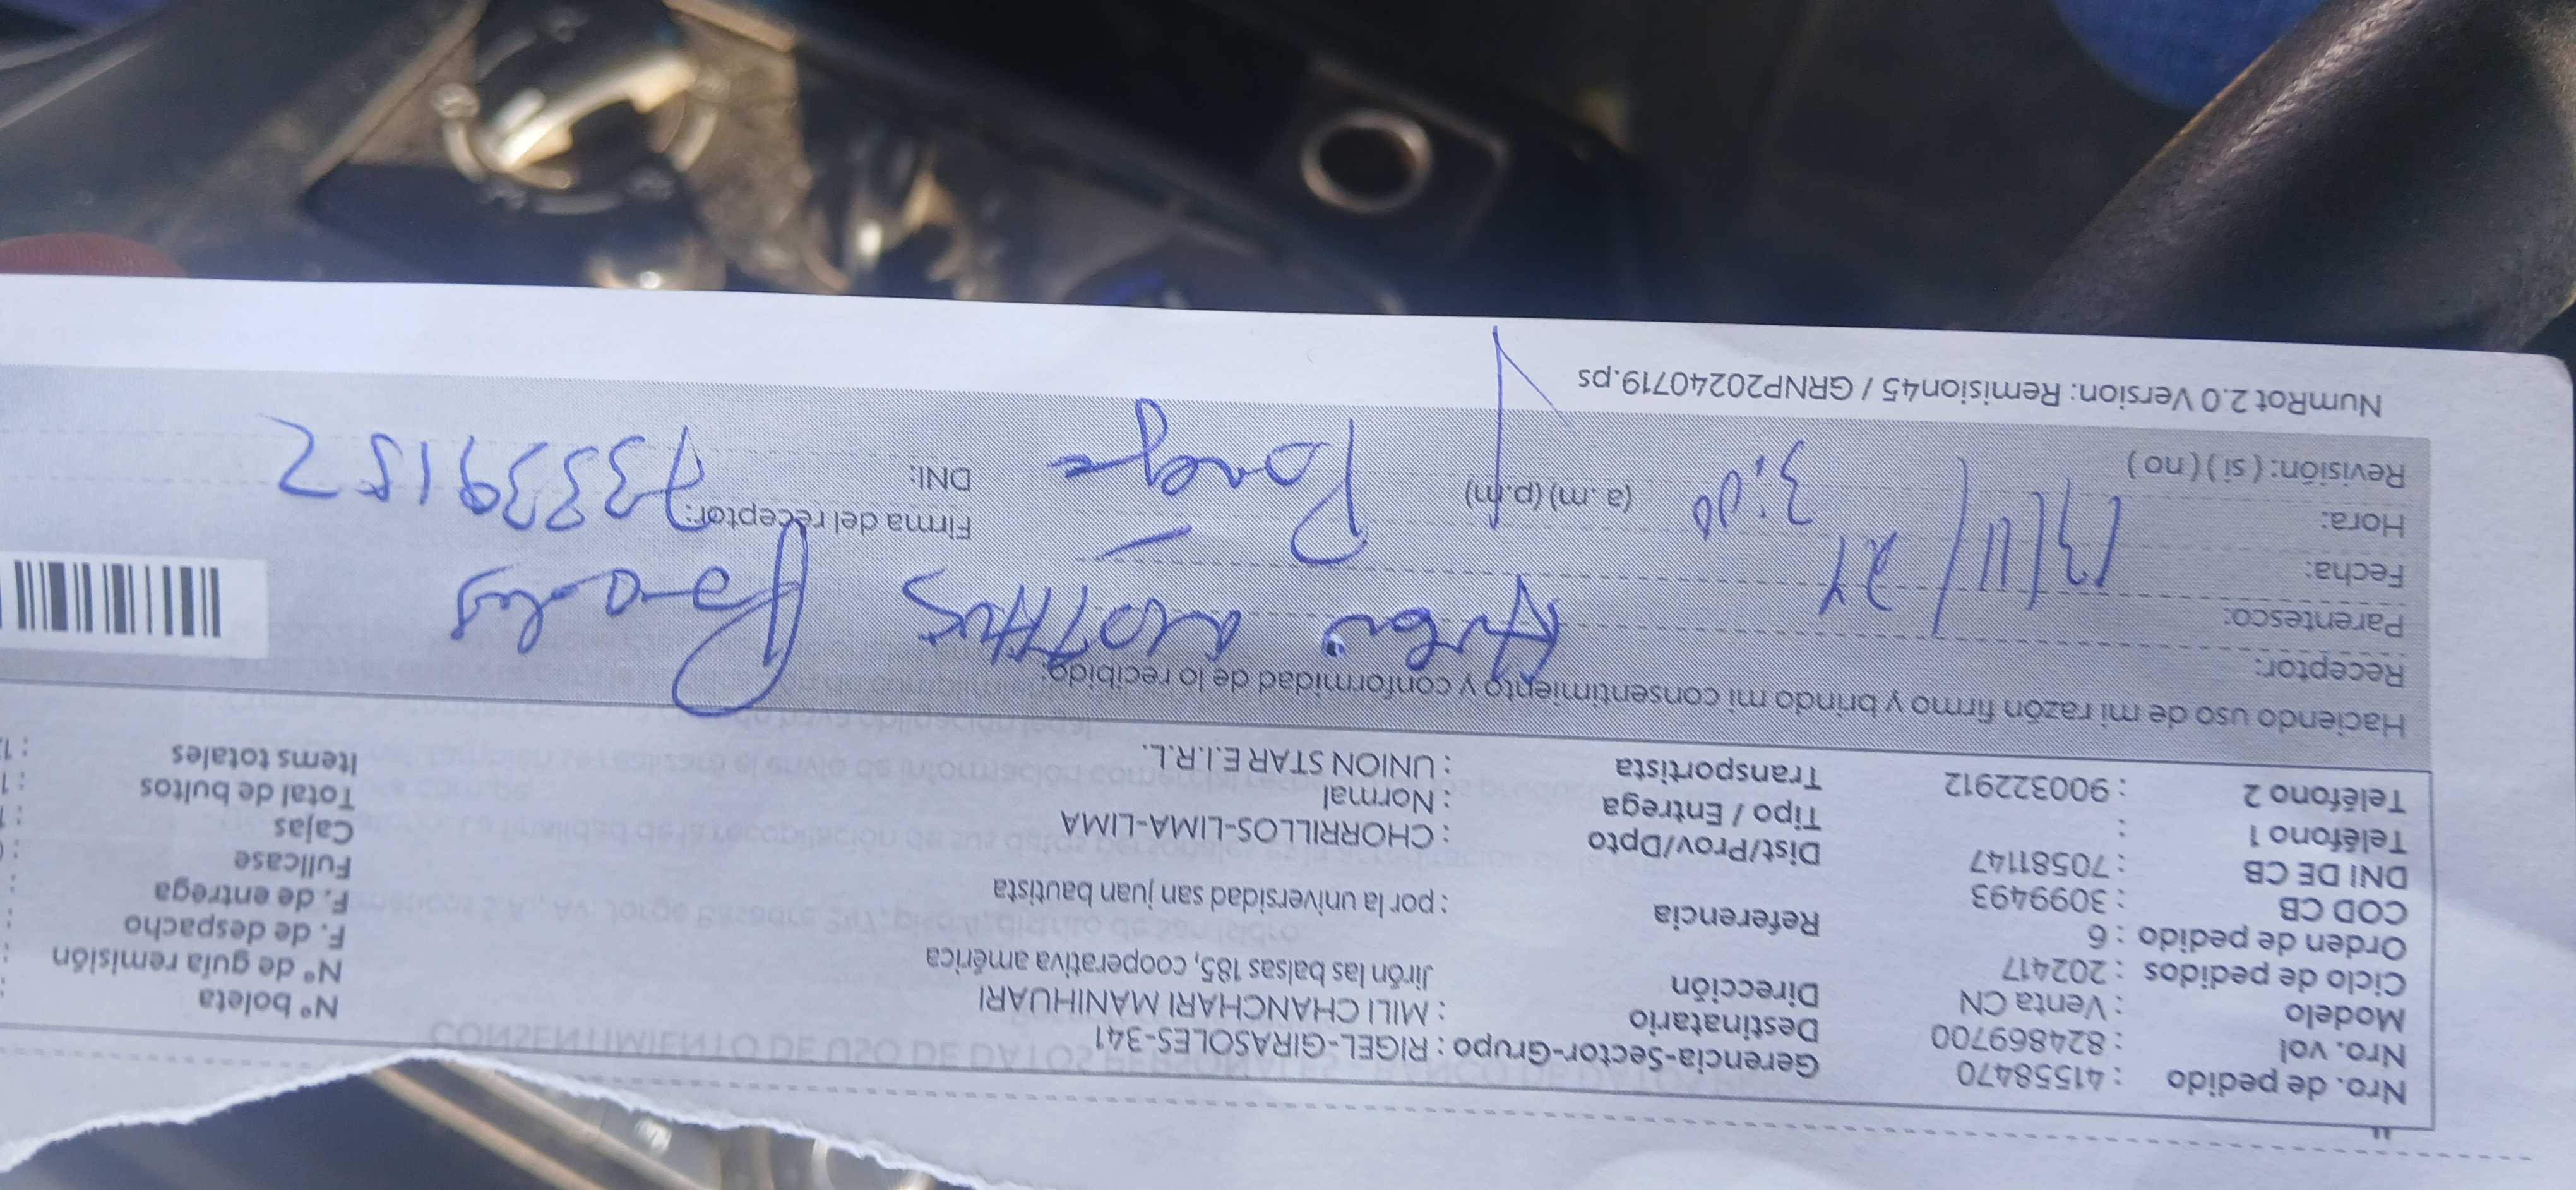 Nro. de pedido : 41558470
Nro. vol : 824869700
Modelo : Venta CN
Ciclo de pedidos : 202417
Orden de pedido : 6
COD CB : 3099493
DNI DE CB : 70581147
Teléfono 1 :
Teléfono 2 : 900322912
Gerencia-Sector-Grupo : RIGEL-GIRASOLES-341
Destinatario : MILI CHANCHARI MANIHUARI
Dirección Jirón las balsas 185, cooperativa américa
Referencia : por la universidad san juan bautista
Dist/Prov/Dpto : CHORRILLOS-LIMA-LIMA
Tipo / Entrega : Normal
Transportista : UNION STAR E.I.R.L.
N° boleta :
N° de guía remisión :
F. de despacho :
F. de entrega :
Fullcase :
Cajas :
Total de bultos : 1
Items totales : 1
Haciendo uso de mi razón firmo y brindo mi consentimiento y conformidad de lo recibido:
Receptor:
Parentesco:
Pareja
Fecha: 13/11/24
Hora: 3:00 (a.m) (p.m)
Revisión: ( si ) ( no )
Firma del receptor:
DNI: 73839152
NumRot 2.0 Version: Remision45 / GRNP20240719.ps